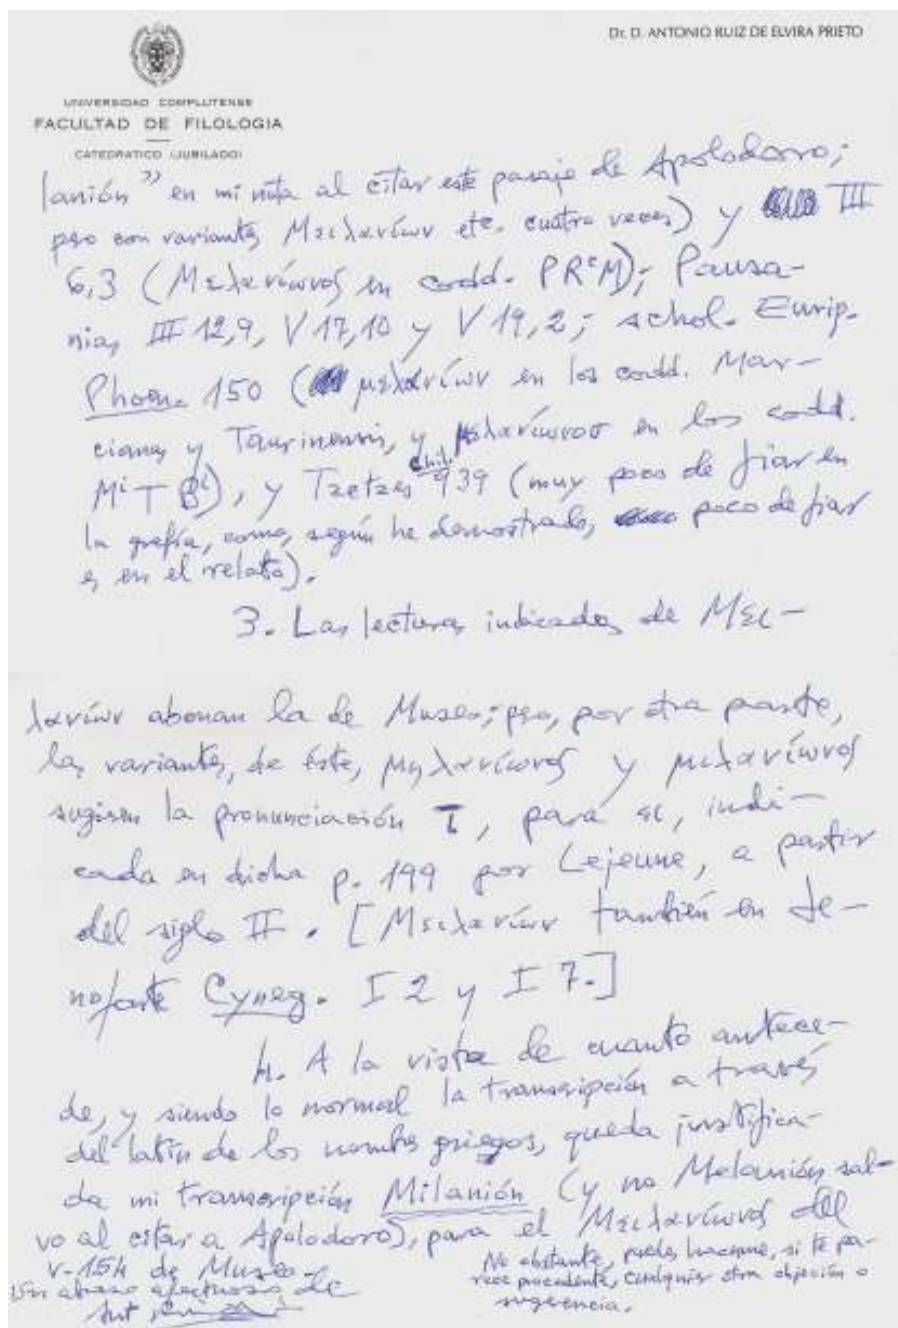 Dr. D. ANTONIO RUIZ DE ELVIRA PRIETO
UNIVERSIDAD COMPLUTENSE
FACULTAD DE FILOLOGIA
CATEDRATICO (JUBILADO)
lanión" en mi nota al citar este pasaje de Apolodoro;
pero con variantes Μειλανίων etc. cuatro veces) y III
6,3 (Μειλανίωνος en codd. PRᶜM); Pausa-
nias III 12,9, V 17,10 y V 19,2; schol. Eurip.
Phoen. 150 (μειλανίων en los codd. Mar-
cianus y Taurinensis, y μειλανίωνος en los codd.
MⁱTBⁱ), y Tzetzes Chil. 939 (muy poco de fiar en
la grafía, como, según he demostrado, poco de fiar
es en el relato).
3. Las lecturas indicadas de Μει-
λανίων abonan la de Museo; pero, por otra parte,
las variantes, de éste, μηλανίωνος y μιλανίωνος
sugieren la pronunciación ῑ, para ει, indi-
cada en dicha p. 199 por Lejeune, a partir
del siglo II. [Μειλανίων también en Je-
nofonte Cyneg. I 2 y I 7.]
4. A la vista de cuanto antece-
de, y siendo lo normal la transcripción a través
del latín de los nombres griegos, queda justifica-
da mi transcripción Milanión (y no Melanión sal-
vo al citar a Apolodoro), para el Μειλανίωνος del
v. 154 de Museo.
Un abrazo afectuoso de
Ant.
No obstante, puedes hacerme, si te pa-
rece procedente, cualquier otra objeción o
sugerencia.